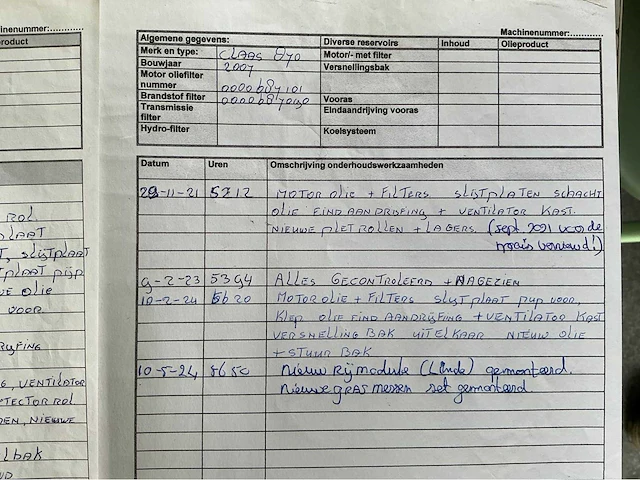 inenummer:............
eproduct
ROL
PLAAT
T, SLIJTPLAAT
TPLAAT PIJP
VE OLIE
VOOR.
RIJFING
G, VENTILATOR
TECTOR ROL
DEN, NIEUWE
LBAK
Machinenummer:............
Algemene gegevens: Diverse reservoirs Inhoud Olieproduct
Merk en type: CLAAS 870 Motor/- met filter
Bouwjaar 2007 Versnellingsbak
Motor oliefilter
nummer 0000687101
Brandstof filter 0000687090 Vooras
Transmissie Eindaandrijving vooras
filter
Hydro-filter Koelsysteem
Datum Uren Omschrijving onderhoudswerkzaamheden
29-11-21 5212 MOTOR OLIE + FILTERS SLIJTPLATEN SCHACHT
OLIE EINDAANDRIJFING + VENTILATOR KAST.
NIEUWE PLETROLLEN + LAGERS. (sept. 2021 voor de
mais vernieuwd!)
9-2-23 5394 ALLES GECONTROLEERD + NAGEZIEN
10-2-24 5620 MOTOR OLIE + FILTERS SLIJTPLAAT PIJP VOOR,
KLEP OLIE EINDAANDRIJFING + VENTILATOR KAST
VERSNELLING BAK UIT ELKAAR NIEUW OLIE
+ STUUR BAK
10-5-24 5650 Nieuw Rijmodule (Linde) gemonteerd.
Nieuwe gras messen set gemonteerd.